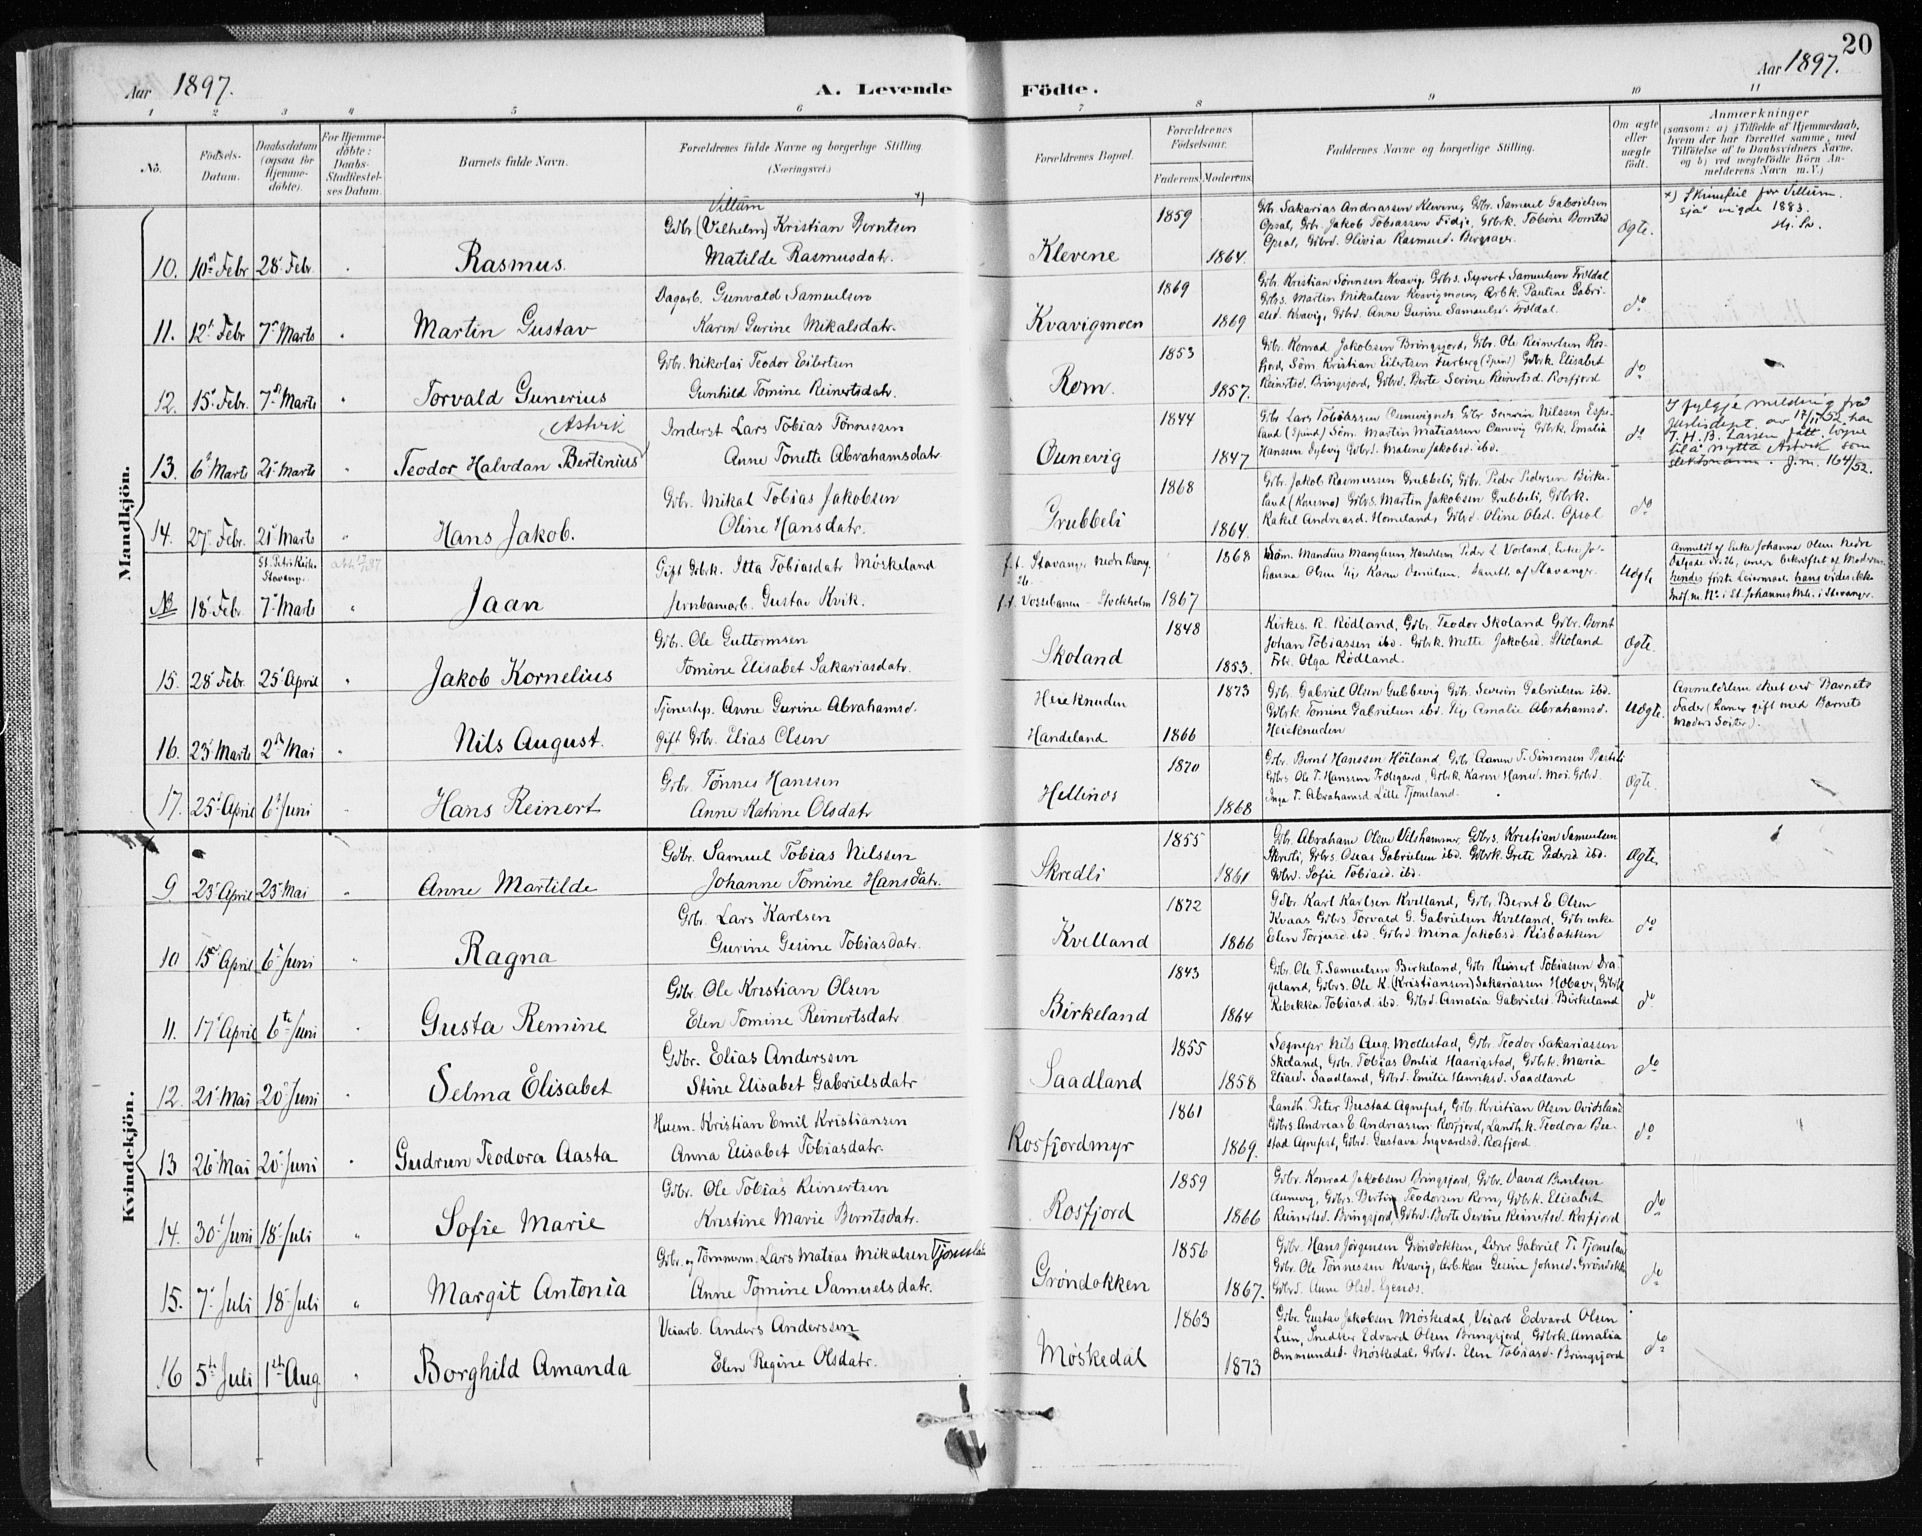 20
Aar 1897.
A. Levende Födte.
Aar 1897.
1 2 3 4 5 6 7 8 9 10 11
No.
Födsels-
Datum.
Daabsdatum
(ogsaa for
Hjemme-
döbte).
For Hjemme-
döbte:
Daabs-
Stadfæstel-
ses Datum.
Barnets fulde Navn.
Forældrenes fulde Navne og borgerlige Stilling.
(Næringsvei.)
Forældrenes Bopæl.
Forældrenes
Födselsaar.
Faderens. Moderens.
Faddernes Navne og borgerlige Stilling.
Om ægte
eller
uægte
födt.
Anmærkninger
(saasom: a) i Tilfælde af Hjemmedaab,
hvem der har forrettet samme, med
Tilföielse af to Daabsvidners Navne,
og b) ved uægtefödte Börn An-
melderens Navn m. V.)
Mandkjön.
10. 10 Febr 28 Febr. Rasmus.
Villum x)
Gdbr (Vilhelm) Kristian Berntsen
Matilde Rasmusdatr.
Klevene 1859 1864.
Gbr. Sakarias Andreassen Klevene, Gbr. Samuel Gabrielsen
Opsal, Gbr Jakob Tobiassen Fidje, Gbrk. Tobine Berntsd
Opsal, Gbrd. Olivia Rasmusd. Bergsager.
Ægte.
x) Skrivefeil for Villum.
sjå vigde 1883.
11. 12 Febr 7 Marts Martin Gustav
Dagarb. Gunvald Samuelsen
Karen Gurine Mikalsdatr.
Kvavigmoen 1869 1869
Gbr Kristian Sønnsen Kvavig, Gbrs. Syvert Samuelsen Frøldal
Gbrs. Martin Mikalsen Kvavigmoen, Arbk. Pauline Gabri-
elsd. Kvavig, Gbrd. Anne Gurine Samuelsd. Frøldal.
do
12. 15 Febr. 7 Marts Torvald Gunerius
Gbr. Nikolai Teodor Eilertsen
Gunhild Tomine Reinertsdatr.
Rom. 1853 1857.
Gbr. Konrad Jakobsen Bringsjord, Gbr. Ole Reinertsen Ros-
fjord, Søm Kristian Eilertsen Furberg (Spind) Gbrk. Elisabet
Reinertsd. Bringsjord, Gbrd. Berte Serine Reinertsd. Rosfjord
do
13. 6 Marts 21 Marts Teodor Halvdan Bertinius
Astvik
Inderst Lars Tobias Tønnessen
Anne Tonette Abrahamsdatr
Ounevig 1844 1847
Gbr Lars Tobiassen Ounevig Gbr. Severin Nilssen Espe-
land (Spind) Søm. Martin Matiassen Ounevig Gbrk. Emalia
Hanssen Gbrd. Malene Jakobsd. ibd.
do
I fylgje melding frå
Justisdept. av 17/11 52 har
T. H. B. Larsen fått løyve
til å nytta Astvik som
slektsnamn. J.nr. 164/52.
14. 27 Febr. 21 Marts Hans Jakob.
Gbr. Mikal Tobias Jakobsen
Oline Hansdatr.
Grubbeli 1868 1864.
Gbr. Jakob Rasmussen Grubbeli, Gbr. Peder Pedersen Birke-
land Gbrs. Martin Jakobsen Grubbeli, Gbrk.
Rakel Andreasd. Homeland, Gbrd. Oline Olsd. Opsal
do
St. Petri Kirke
Stavang.
No 18 Febr. 7 Marts Jaan
Gift Gbrk. Itta Tobiasdatr Møskeland
Jernbanearb. Gustav Kvik.
f.t. Stavanger Nedre Baneg.
26.
f.t. Vossebanen - Stockholm 1868 1867
Søm. Mandius Manglesen Peder L. Vorland, Enke Jo-
hanna Olsen Pige Karen Danielsen. samtl. af Stavanger.
Uægte
Anmeldt af Enke Johanna Olsen Nedre
Dalgade No. 26, senere bekræftet af Moderen.
hendes første Leiermaal. hans vides ikke.
Indf. m. No. i St. Johannes Mk. i Stavanger.
15. 28 Febr. 25 April Jakob Kornelius
Gbr. Ole Guttormsen
Tomine Elisabet Sakariasdatr.
Skoland 1848 1853.
Kirkes. R. Rødland, Gbr. Teodor Skoland Gbr. Bernt
Johan Tobiassen ibd. Gbrk. Mette Jakobsd. Skoland
Frk. Olga Rødland.
Ægte.
16. 23 Marts 2 Mai Nils August.
Tjenestep. Anne Gurine Abrahamsd.
Gift Gbr. Elias Olsen
Heieknuden
Handeland 1873 1866
Gbr. Gabriel Olsen Gubbevig Gbr. Severin Gabrielsen ibd.
Gbrk. Tomine Gabrielsen ibd. Pige Amalie Abrahamsd.
Heieknuden
Uægte.
Anmeldelsen skeet ved Barnets
Fader (han er gift med Barnets
Moders Søster).
17. 25 April 6 Juni Hans Reinert
Gbr. Tønnes Hanssen
Anne Katrine Olsdatr
Hellenes 1870 1868
Gbr. Bernt Hanssen Höiland, Gbr Aanen T. Simonsen
Gbrs Ole T. Hanssen Gbrk. Karen Hansd. Moi. Gbrd.
Inga T. Abrahamsd. Lille Tjomeland.
Ægte.
Kvindekjön.
9. 23 April 23 Mai Anne Martilde
Gdbr. Samuel Tobias Nilssen
Johanne Tomine Hansdatr.
Skredli 1855 1861
Gbr. Abraham Olsen Gbrs. Kristian Samuelsen
Skredli, Gbrs Oscar Gabrielsen ibd. Gbrk. Grete Pedersd ibd.
Gbrd. Sofie Tobiasd. ibd.
Ægte
10 15 April 6 Juni Ragna
Gdbr. Lars Karlsen
Gurine Gesine Tobiasdatr.
Kvelland 1872 1866
Gdbr Karl Karlsen Kvelland, Gbr. Bernt E Olsen
Kvaas Gbrs. Torvald G. Gabrielsen Kvelland, Gbr.enke
Elen Torjusd. ibd. Gbrd Mina Jakobsd Risbakken
do
11. 17 April 6te Juni Gusta Remine
Gdbr. Ole Kristian Olsen
Elen Tomine Reinertsdatr
Birkeland 1843 1864
Gbr. Ole T. Samuelsen Birkeland, Gbr Reinert Tobiassen Dra-
geland, Gbrs. Ole K. (Kristiansen) Sakariassen Gbrk
Rebekka Tobiasd. ibd. Gbrd Amalia Gabrielsd. Birkeland
do
12. 21 Mai 20 Juni Selma Elisabet
Gdbr. Elias Anderssen
Stine Elisabet Gabrielsdatr
Saadland 1855 1858
Sognepr Nils Aug. Mollestad, Gbr. Teodor Sakariassen
Skoland, Gbr. Tobias Omlid Haarigstad, Gbrk. Maria
Eliasd. Saadland, Gbrd. Emilie Henriksd. Saadland
do
13 26 Mai 20 Juni Gudrun Teodora Aasta
Husm. Kristian Emil Kristiansen
Anna Elisabet Tobiasdatr.
Rosfjordmyr 1861 1869.
Landh. Peter Bustad Agnefest, Gbr. Kristian Olsen
Gbrs. Andreas E Andreassen Rosfjord, Landh.k. Teodora Bu-
stad Agnefest, Gbrd. Gustava Ingvardsd. Rosfjord
do
14. 30 Juni 18 Juli Sofie Marie
Gdbr. Ole Tobias Reinertsen
Kristine Marie Berntsdatr.
Rosfjord 1859 1866
Gdbr. Konrad Jakobsen Bringsjord, Gdbr. David Berntsen
Aunevig, Gdbrs. Bertin Teodorsen Rom, Gdbrk. Elisabet
Reinertsd. Bringsjord, Gbrd. Berte Serine Reinertsd. Rosfjord
do
15. 7 Juli 18 Juli Margit Antonia
Gdbr. og Tømmerm. Lars Matias Mikalsen Tjomsland
Anne Tomine Samuelsdatr.
Grøndokken 1856 1867.
Gdbr. Hans Jørgensen Grøndokken, Lærer Gabriel T. Tjomsland
Gdbr. Ole Tønnessen Kvavig, Arb.kone Gesine Johnsd. Grøndokk
Gdbrd. Anne Olsd. Egenes.
do
16 5te Juli 1ste Aug Borghild Amanda
Veiarb. Anders Anderssen
Elen Regine Olsdatr.
Møskedal 1863 1873
Gbr. Gustav Jakobsen Møskedal, Veiarb Edvard Olsen
Snedker Edvard Olsen Bringsjord, Gdbrk. Amalia
Ommundsd. Møskedal, Gdbrd. Elen Tobiasd. Bringsjord
do